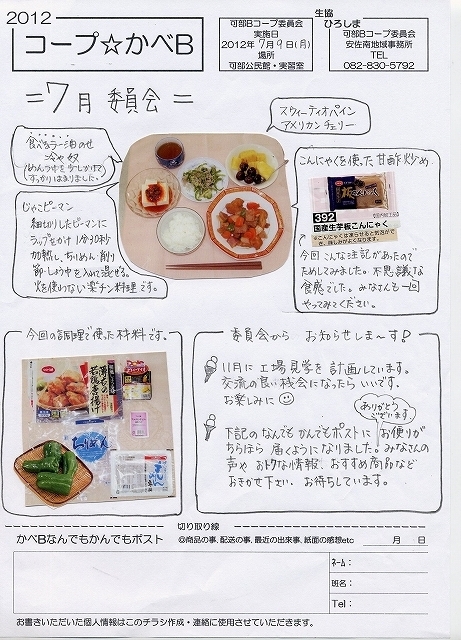 2012
コープ☆かべB
可部Bコープ委員会
実施日
2012年7月9日(月)
場所
可部公民館・実習室
生協
ひろしま
可部Bコープ委員会
安佐南地域事務所
TEL
082-830-5792
=7月 委員会=
スウィーティオパイン
アメリカンチェリー
食べるラー油のせ
冷や奴
(めんつゆを少しかけて
すっかりはまりました。)
じゃこピーマン
細切りしたピーマンに
ラップをかけ1分30秒
加熱し、ちりめん・削り
節・しょうゆを入れて混ぜる。
火を使わない楽チン料理です。
こんにゃくを使った甘酢炒め
板こんにゃく
392
国産生芋板こんにゃく
※こんにゃくは凍らせると気泡ができ、
味しみがよくなります。
今回こんな注記があったので
ためしてみました。不思議な
食感でした。みなさんも一回
やってみてください。
今回の調理で使った材料です。
若鶏
ちりめん
委員会から お知らせしま〜す!
11月に工場見学を計画しています。
交流の良い機会になったらいいです。
お楽しみに
ありがとう
ございます
下記のなんでもかんでもポストに お便りが
ちらほら 届くようになりました。みなさんの
声や おトクな情報、おすすめ商品など
おきかせ下さい。お待ちしています。
切り取り線
かべBなんでもかんでもポスト
◎商品の事、配送の事、最近の出来事、紙面の感想etc
月 日
ネーム:
班名:
Tel:
お書きいただいた個人情報はこのチラシ作成・連絡に使用させていただきます。